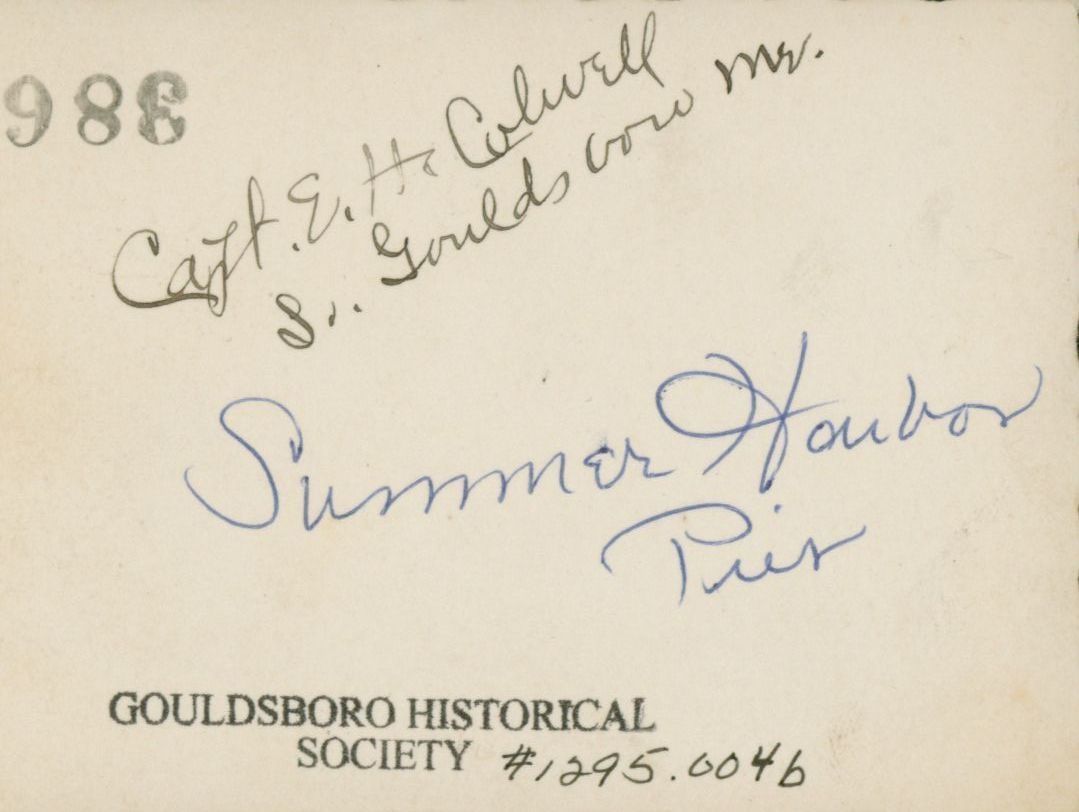 988
Capt. E. H. Colwell
So. Gouldsboro Me.
Summer Harbor
Pier
GOULDSBORO HISTORICAL
SOCIETY #1295.0046